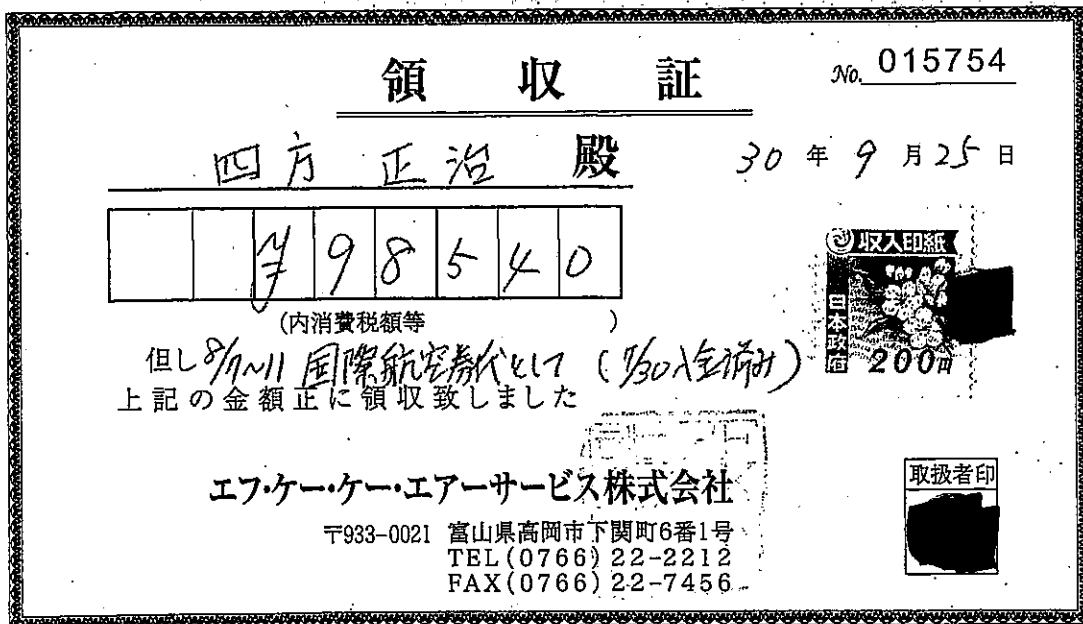 領収証
No. 015754
四方 正治 殿
30年9月25日
¥98540
(内消費税額等 )
収入印紙
日本政府
200円
但し8/7~11 国際航空券代として (7/30入金済み)
上記の金額正に領収致しました
エフ・ケー・ケー・エアーサービス株式会社
〒933-0021 富山県高岡市下関町6番1号
TEL(0766)22-2212
FAX(0766)22-7456
取扱者印